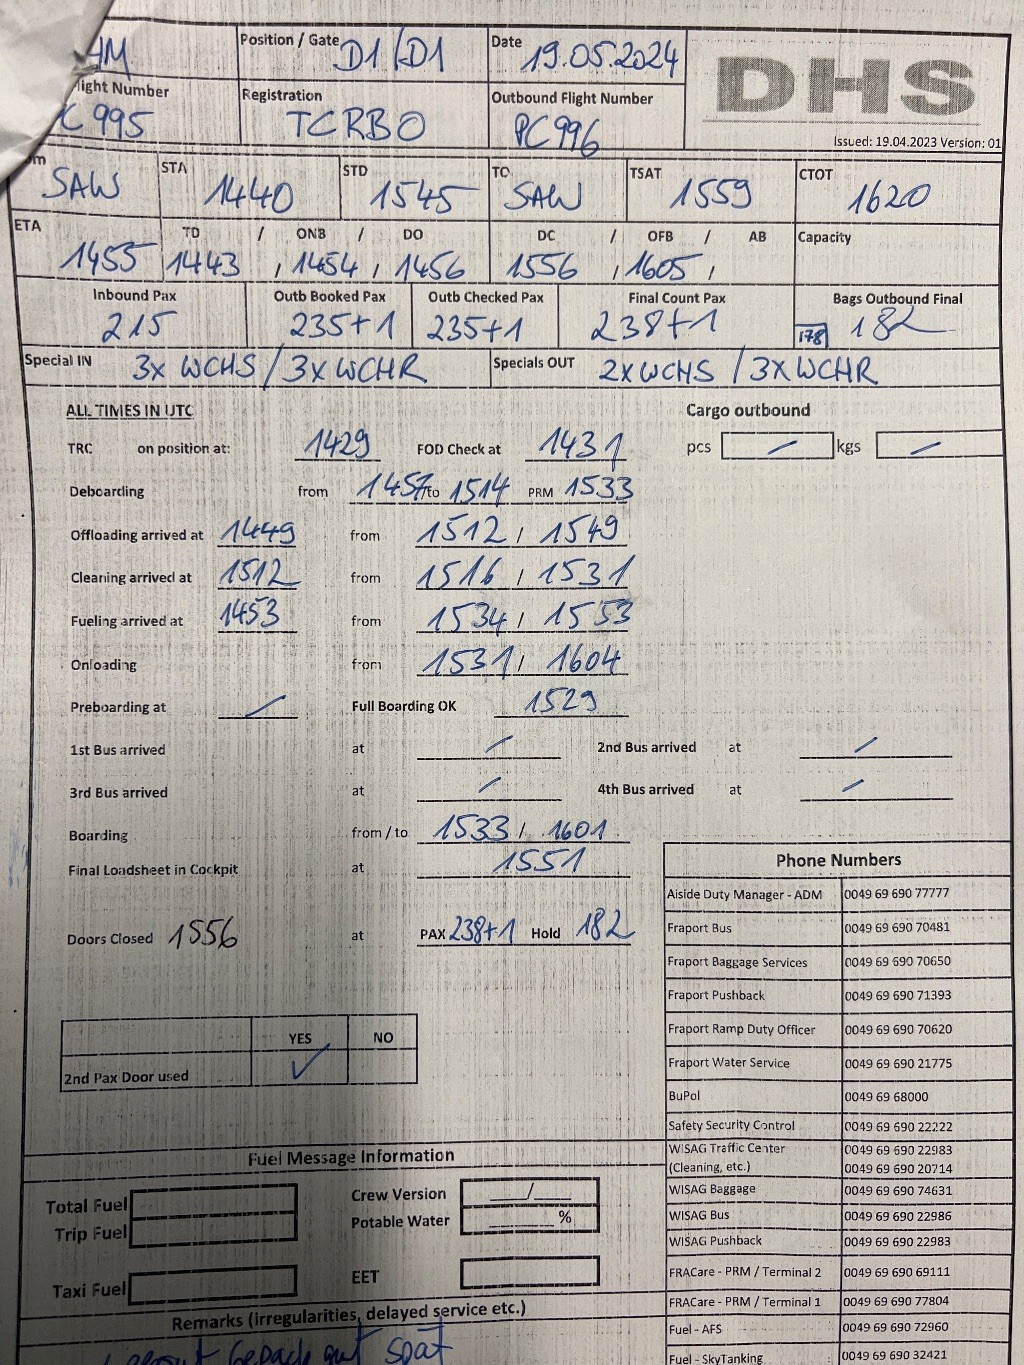 Position / Gate D1/D1
Date 19.05.2024
DHS
Flight Number
995
Registration TCRBO
Outbound Flight Number PC996
Issued: 19.04.2023 Version: 01
SAW
STA 1440
STD 1545
TO SAW
TSAT 1559
CTOT 1620
ETA 1455
TD / ONB / DO
1443 , 1454 , 1456
DC / OFB / AB
1556 , 1605 ,
Capacity
Inbound Pax 215
Outb Booked Pax 235+1
Outb Checked Pax 235+1
Final Count Pax 238+1
Bags Outbound Final 178 182
Special IN 3x WCHS / 3x WCHR
Specials OUT 2x WCHS / 3x WCHR
ALL TIMES IN UTC
Cargo outbound
TRC on position at: 1429 FOD Check at 1431
pcs / kgs /
Deboarding from 1457 to 1514 PRM 1533
Offloading arrived at 1449 from 1512 , 1549
Cleaning arrived at 1512 from 1516 , 1531
Fueling arrived at 1453 from 1534 , 1553
Onloading from 1531 , 1604
Preboarding at / Full Boarding OK 1529
1st Bus arrived at / 2nd Bus arrived at /
3rd Bus arrived at / 4th Bus arrived at /
Boarding from / to 1533 / 1601
Final Loadsheet in Cockpit at 1551
Doors Closed 1556 at PAX 238+1 Hold 182
YES NO
2nd Pax Door used ✓
Fuel Message Information
Total Fuel
Trip Fuel
Taxi Fuel
Crew Version ___/___
Potable Water ______ %
EET
Remarks (irregularities, delayed service etc.)
Gepäck spät
Phone Numbers
Aiside Duty Manager - ADM 0049 69 690 77777
Fraport Bus 0049 69 690 70481
Fraport Baggage Services 0049 69 690 70650
Fraport Pushback 0049 69 690 71393
Fraport Ramp Duty Officer 0049 69 690 70620
Fraport Water Service 0049 69 690 21775
BuPol 0049 69 68000
Safety Security Control 0049 69 690 22222
WISAG Traffic Center 0049 69 690 22983
(Cleaning, etc.) 0049 69 690 20714
WISAG Baggage 0049 69 690 74631
WISAG Bus 0049 69 690 22986
WISAG Pushback 0049 69 690 22983
FRACare - PRM / Terminal 2 0049 69 690 69111
FRACare - PRM / Terminal 1 0049 69 690 77804
Fuel - AFS 0049 69 690 72960
Fuel - SkyTanking 0049 69 690 32421